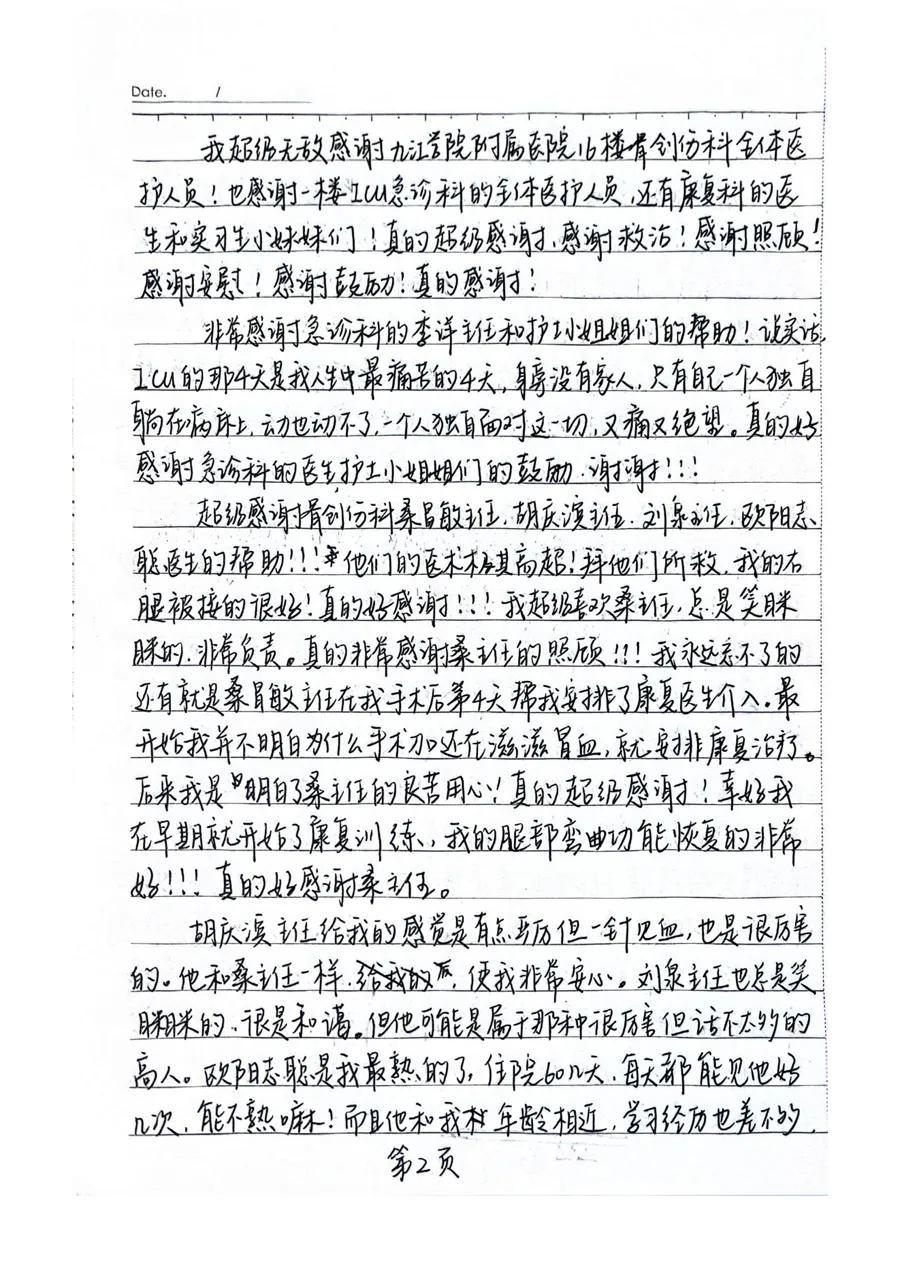 Date. /
我超级无敌感谢九江学院附属医院16楼骨创伤科全体医
护人员！也感谢一楼ICU急诊科的全体医护人员，还有康复科的医
生和实习生小妹妹们！真的超级感谢，感谢救治！感谢照顾！
感谢安慰！感谢鼓励！真的感谢！
非常感谢急诊科的李洋主任和护士小姐姐们的帮助！说实话，
ICU的那4天是我人生中最痛苦的4天，身旁没有家人，只有自己一个人独自
躺在病床上，动也动不了，一个人独自面对这一切，又痛又绝望。真的好
感谢急诊科的医生护士小姐姐们的鼓励，谢谢！！！
超级感谢骨创伤科桑昌敏主任，胡庆滨主任，刘泉主任，欧阳志
聪医生的帮助！！！他们的医术极其高超！拜他们所救，我的右
腿被接的很好！真的好感谢！！！我超级喜欢桑主任，总是笑眯
眯的，非常负责。真的非常感谢桑主任的照顾！！！我永远忘不了的
还有就是桑昌敏主任在我手术后第4天帮我安排了康复医生介入。最
开始我并不明白为什么手术口还在滋滋冒血，就安排康复治疗。
后来我是明白了桑主任的良苦用心！真的超级感谢！幸好我
在早期就开始了康复训练，我的腿部弯曲功能恢复的非常
好！！！真的好感谢桑主任。
胡庆滨主任给我的感觉是有点严厉但一针见血，也是很厉害
的。他和桑主任一样，给我的，使我非常安心。刘泉主任也总是笑
眯眯的，很是和蔼。但他可能是属于那种很厉害但话不太多的
高人。欧阳志聪是我最熟的了，住院60几天，每天都能见他好
几次，能不熟嘛！而且他和我年龄相近，学习经历也差不多，
第2页